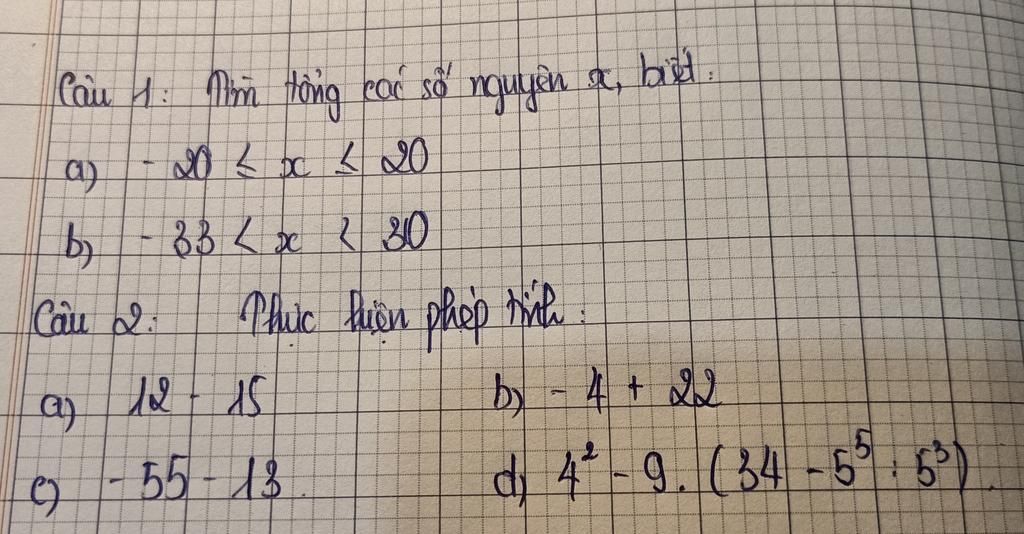 Câu 1: Tìm tổng các số nguyên x, biết:
a) - 20 ≤ x ≤ 20
b) - 33 < x < 30
Câu 2: Thực hiện phép tính:
a) 12 - 15 b) - 4 + 22
c) - 55 - 13. d) 4² - 9. (34 - 5⁵ : 5³).